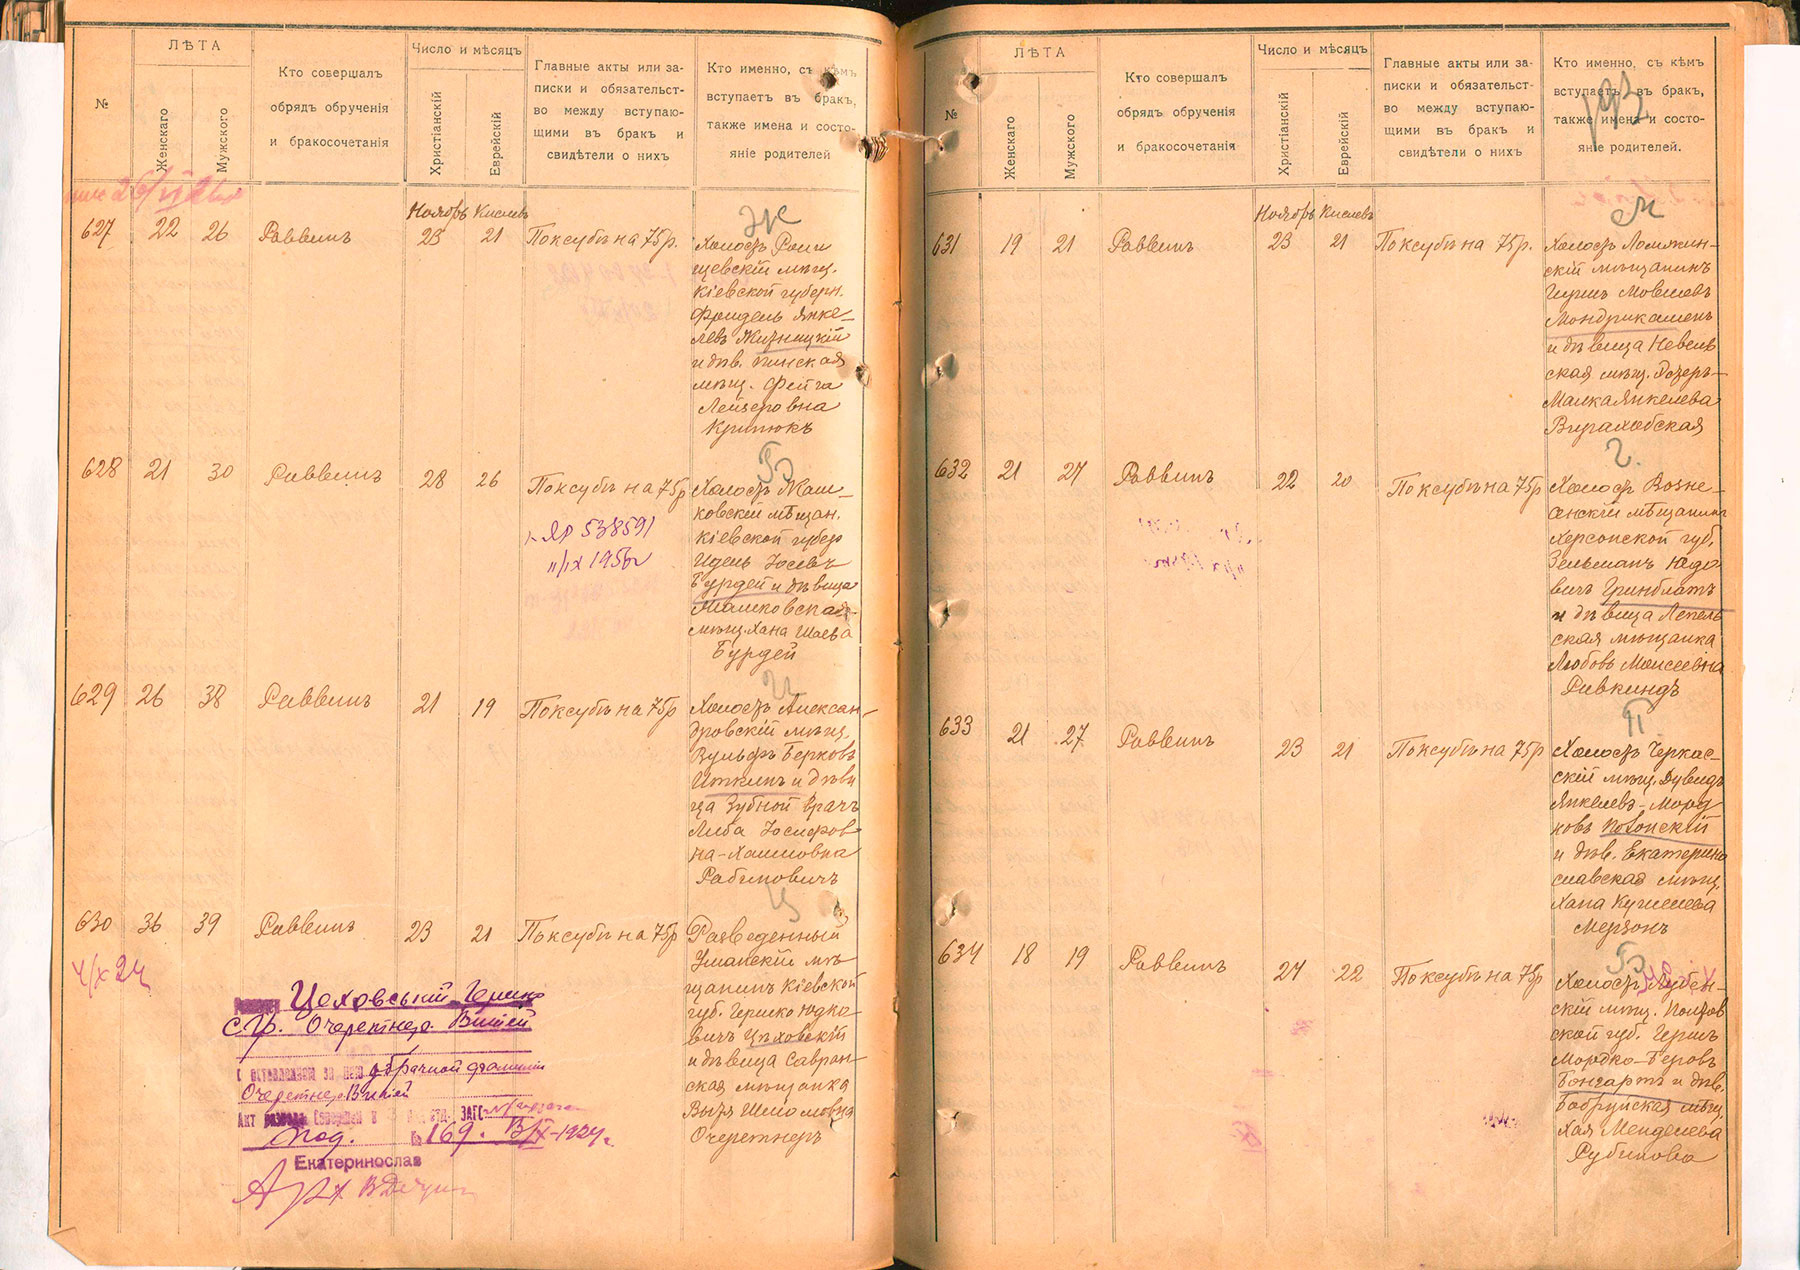 №
ЛѢТА
Женскаго
Мужского
Кто совершалъ
обрядъ обрученія
и бракосочетанія
Число и мѣсяцъ
Христіанскій
Еврейскій
Главные акты или за-
писки и обязательст-
во между вступаю-
щими въ бракъ и
свидѣтели о нихъ
Кто именно, съ кѣмъ
вступаетъ въ бракъ,
также имена и состо-
яніе родителей
Ноябрь Кислевъ
627 22 26 Раввинъ 23 21 По ксубѣ на 75 р.
Ж
Холостъ
щевскій мѣщ.
Кіевской губерн.
Фридель Янке-
левъ Жизницкій
и дѣв. Пинская
мѣщ. Фейга
Лейзеровна
Критюкъ
628 21 30 Раввинъ 28 26 По ксубѣ на 75 р
ЯР 538591
11/IX 1956г
Б
Холостъ Жаш-
ковскій мѣщан.
Кіевской губер
Идель Іосевъ
Бурдей и дѣвица
мѣщ. Хана Шаева
Бурдей
629 26 38 Раввинъ 21 19 По ксубѣ на 75 р
И
Холостъ Алексан-
дровскій мѣщ.
Вульфъ Берковъ
Иткинъ и дѣви
ца Зубной врачъ
Либа Іосифов
на-Хаимовна
Рабиновичъ
630 36 39 Раввинъ 23 21 По ксубѣ на 75 р
4/X 24
Ц
Разведенный
Уманскій мѣ
щанинъ Кіевской
губ. Гершко Юдко
вичъ Цѣховскій
и дѣвица Савран-
ская мѣщанка
Шломовна
Очеретнеръ
Цеховський Гершко
с гр. Очеретнер
с оставлением за нею добрачной фамилии
Очеретнер
Акт развода Совершен в ЗАГС
под. № 169. 1924 г.
Екатеринослав
Арх
№
ЛѢТА
Женскаго
Мужского
Кто совершалъ
обрядъ обрученія
и бракосочетанія
Число и мѣсяцъ
Христіанскій
Еврейскій
Главные акты или за-
писки и обязательст-
во между вступаю-
щими въ бракъ и
свидѣтели о нихъ
Кто именно, съ кѣмъ
вступаетъ въ бракъ,
также имена и состо-
яніе родителей.
193
Ноябрь Кислевъ
631 19 21 Раввинъ 23 21 По ксубѣ на 75 р.
М
Холостъ Ломжин-
скій мѣщанинъ
Гершъ Мовшевъ
Мондрикаменъ
и дѣвица Невель
ская мѣщ.
Малка Янкелева
632 21 27 Раввинъ 22 20 По ксубѣ на 75 р
Г.
Холостъ Возне-
сенскій мѣщанинъ
Херсонской губ.
Зельманъ Юдо
вичъ Гринблатъ
и дѣвица Лепель
ская мѣщанка
Любовь Моисеевна
Ривкиндъ
633 21 27 Раввинъ 23 21 По ксубѣ на 75 р
П
Холостъ Черкас-
скій мѣщ. Дувидъ
Янкелевъ-Морд
ковъ
и дѣв. Екатерино
славская мѣщ.
Хана
Мерзонъ
634 18 19 Раввинъ 24 22 По ксубѣ на 75 р
Б
Холостъ Лубен-
скій мѣщ. Полтав
ской губ. Гершъ
Мордко-Беровъ
Бонгартъ и дѣв.
Бобруйская мѣщ.
Хая Менделева
Рубинова